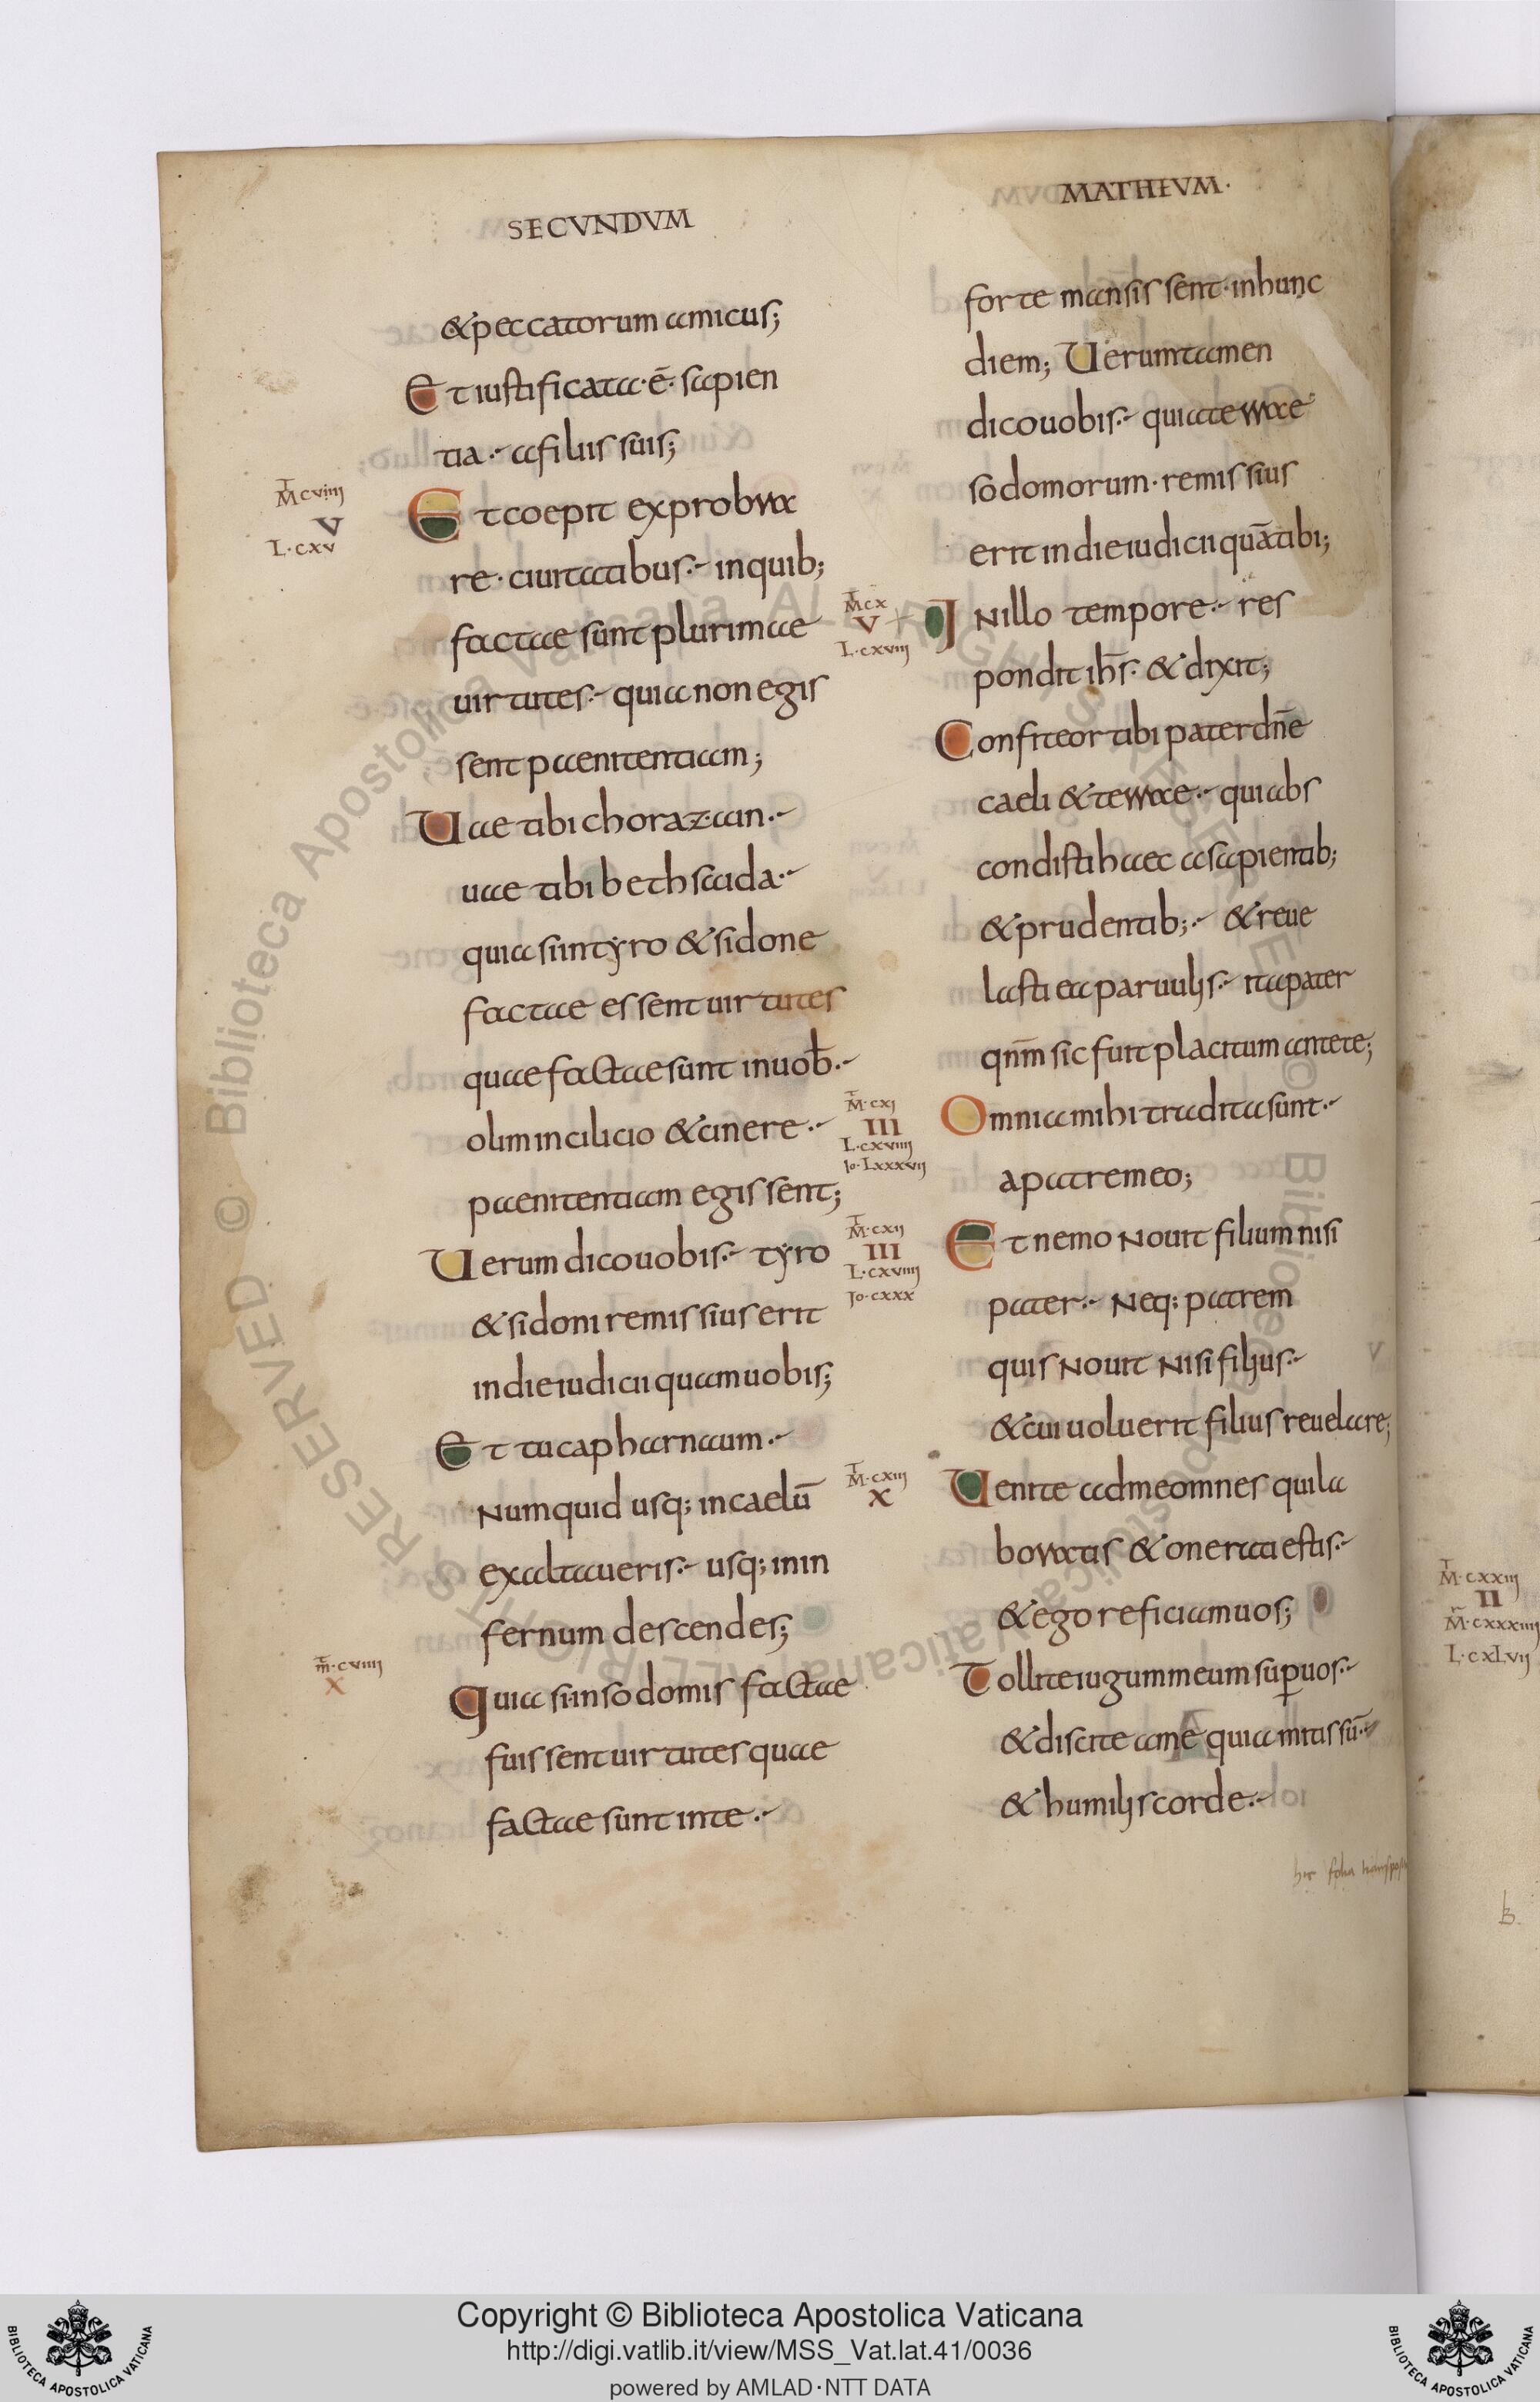 SECVNDVM
&peccatorum amicus;
Et iustificata·ē· sapien
tia·- a filiis suis;
Mcviiij
V
L·cxv
Et coepit exprobra
re·ciuitatibus·- in quib;
factae sunt plurimae
uirtutes·- quia non egis
sent paenitentiam;
Uae tibi chorazain·-
uae tibi bethsaida·-
quia si in tyro & sidone
factae essent uirtutes
quae factae sunt in uob̄·-
olim in cilicio & cinere·-
paenitentiam egissent;
Uerum dico uobis·- tyro
& sidoni remissius erit
in die iudicii quam uobis;
Et tu capharnaum·-
Numquid usq; in caelū
exaltaueris·- usq; in in
fernum descendes;
m·cviiij
X
Quia si·in sodomis factae
fuissent uirtutes quae
factae sunt in te·-
MATHEVM·
forte mansissent·in hunc
diem; Uerumtamen
dico uobis·- quia terrae
sodomorum·remissius
erit in die iudicii quā tibi;
Mcx
V
L·cxviij
IN illo tempore·- res
pondit ihs̄· & dixit;
Confiteor tibi pater dn̄e
caeli & terrae·- qui abs
condisti haec a sapientib;
& prudentib;·- & reue
lasti ea paruulis·- ita pater
qnm̄ sic fuit placitum ante te;
M·cxi
III
L·cxviiij
Io·Lxxxvij
Omnia mihi tradita sunt·-
a patre meo;
M·cxij
III
L·cxviiij
Io·cxxx
Et nemo Nouit filium nisi
pater·- Neq: patrem
quis Nouit Nisi filius·-
& cui uoluerit filius reuelare;
M·cxiij
X
Uenite ad me omnes qui la
boratis & onerati estis·-
& ego reficiam uos;
Tollite iugum meum sup̱ uos·-
& discite a me quia mitis sū·-
& humilis corde·-
hic folia
M·cxxiij
II
M̄·cxxxiiij
L·cxLvij
b.
Copyright © Biblioteca Apostolica Vaticana
http://digi.vatlib.it/view/MSS_Vat.lat.41/0036
powered by AMLAD·NTT DATA
BIBLIOTECA APOSTOLICA VATICANA
BIBLIOTECA APOSTOLICA VATICANA